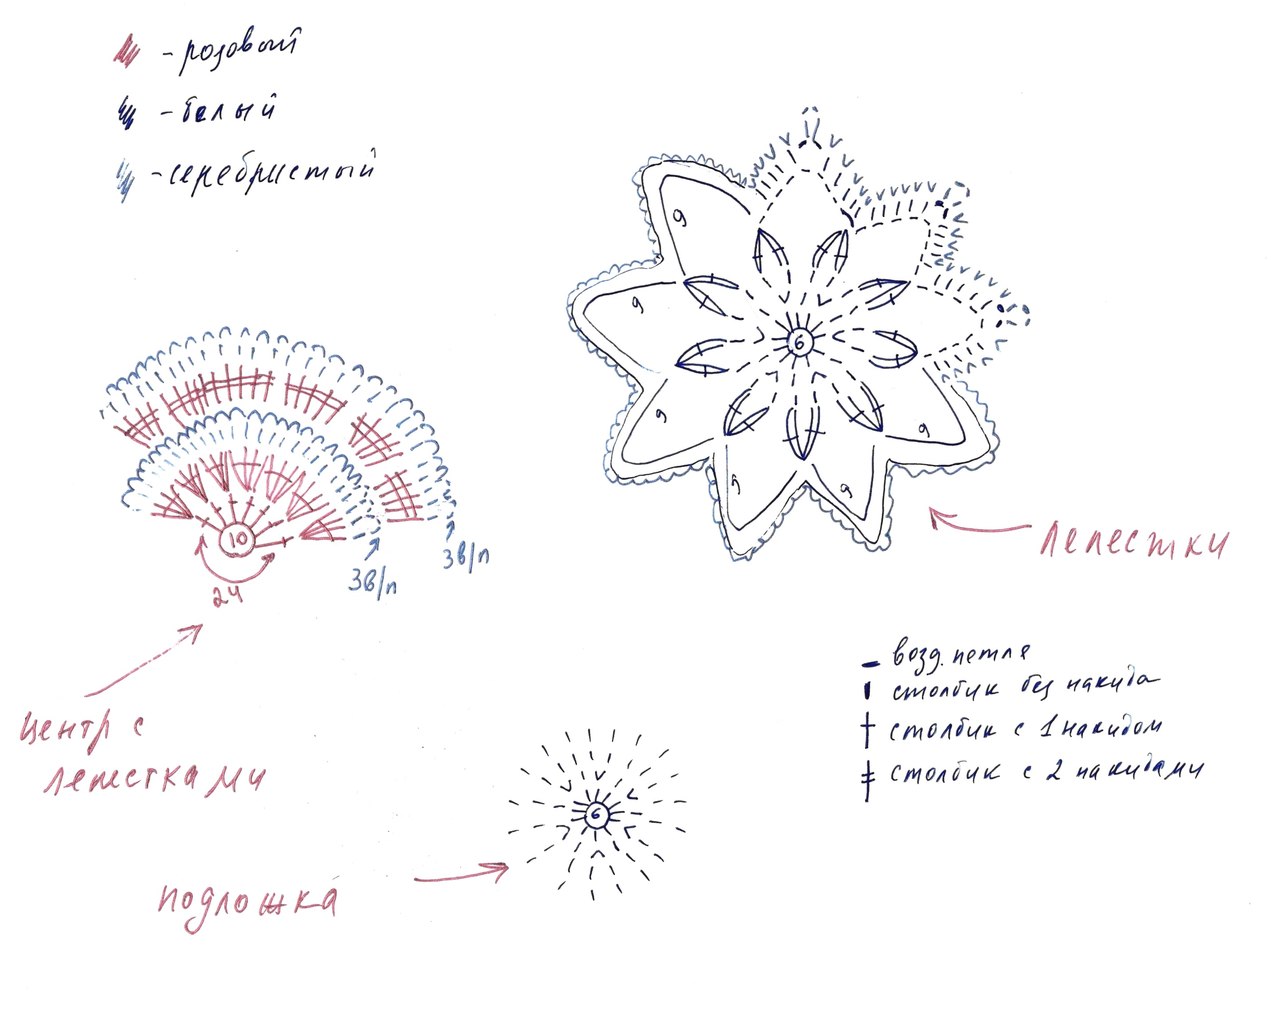 - розовый
- белый
- серебристый
9
9
9
9
9
9
6
10
24
3в/п
3в/п
лепестки
центр с
лепестками
- возд. петля
столбик без накида
столбик с 1 накидом
столбик с 2 накидами
6
подложка